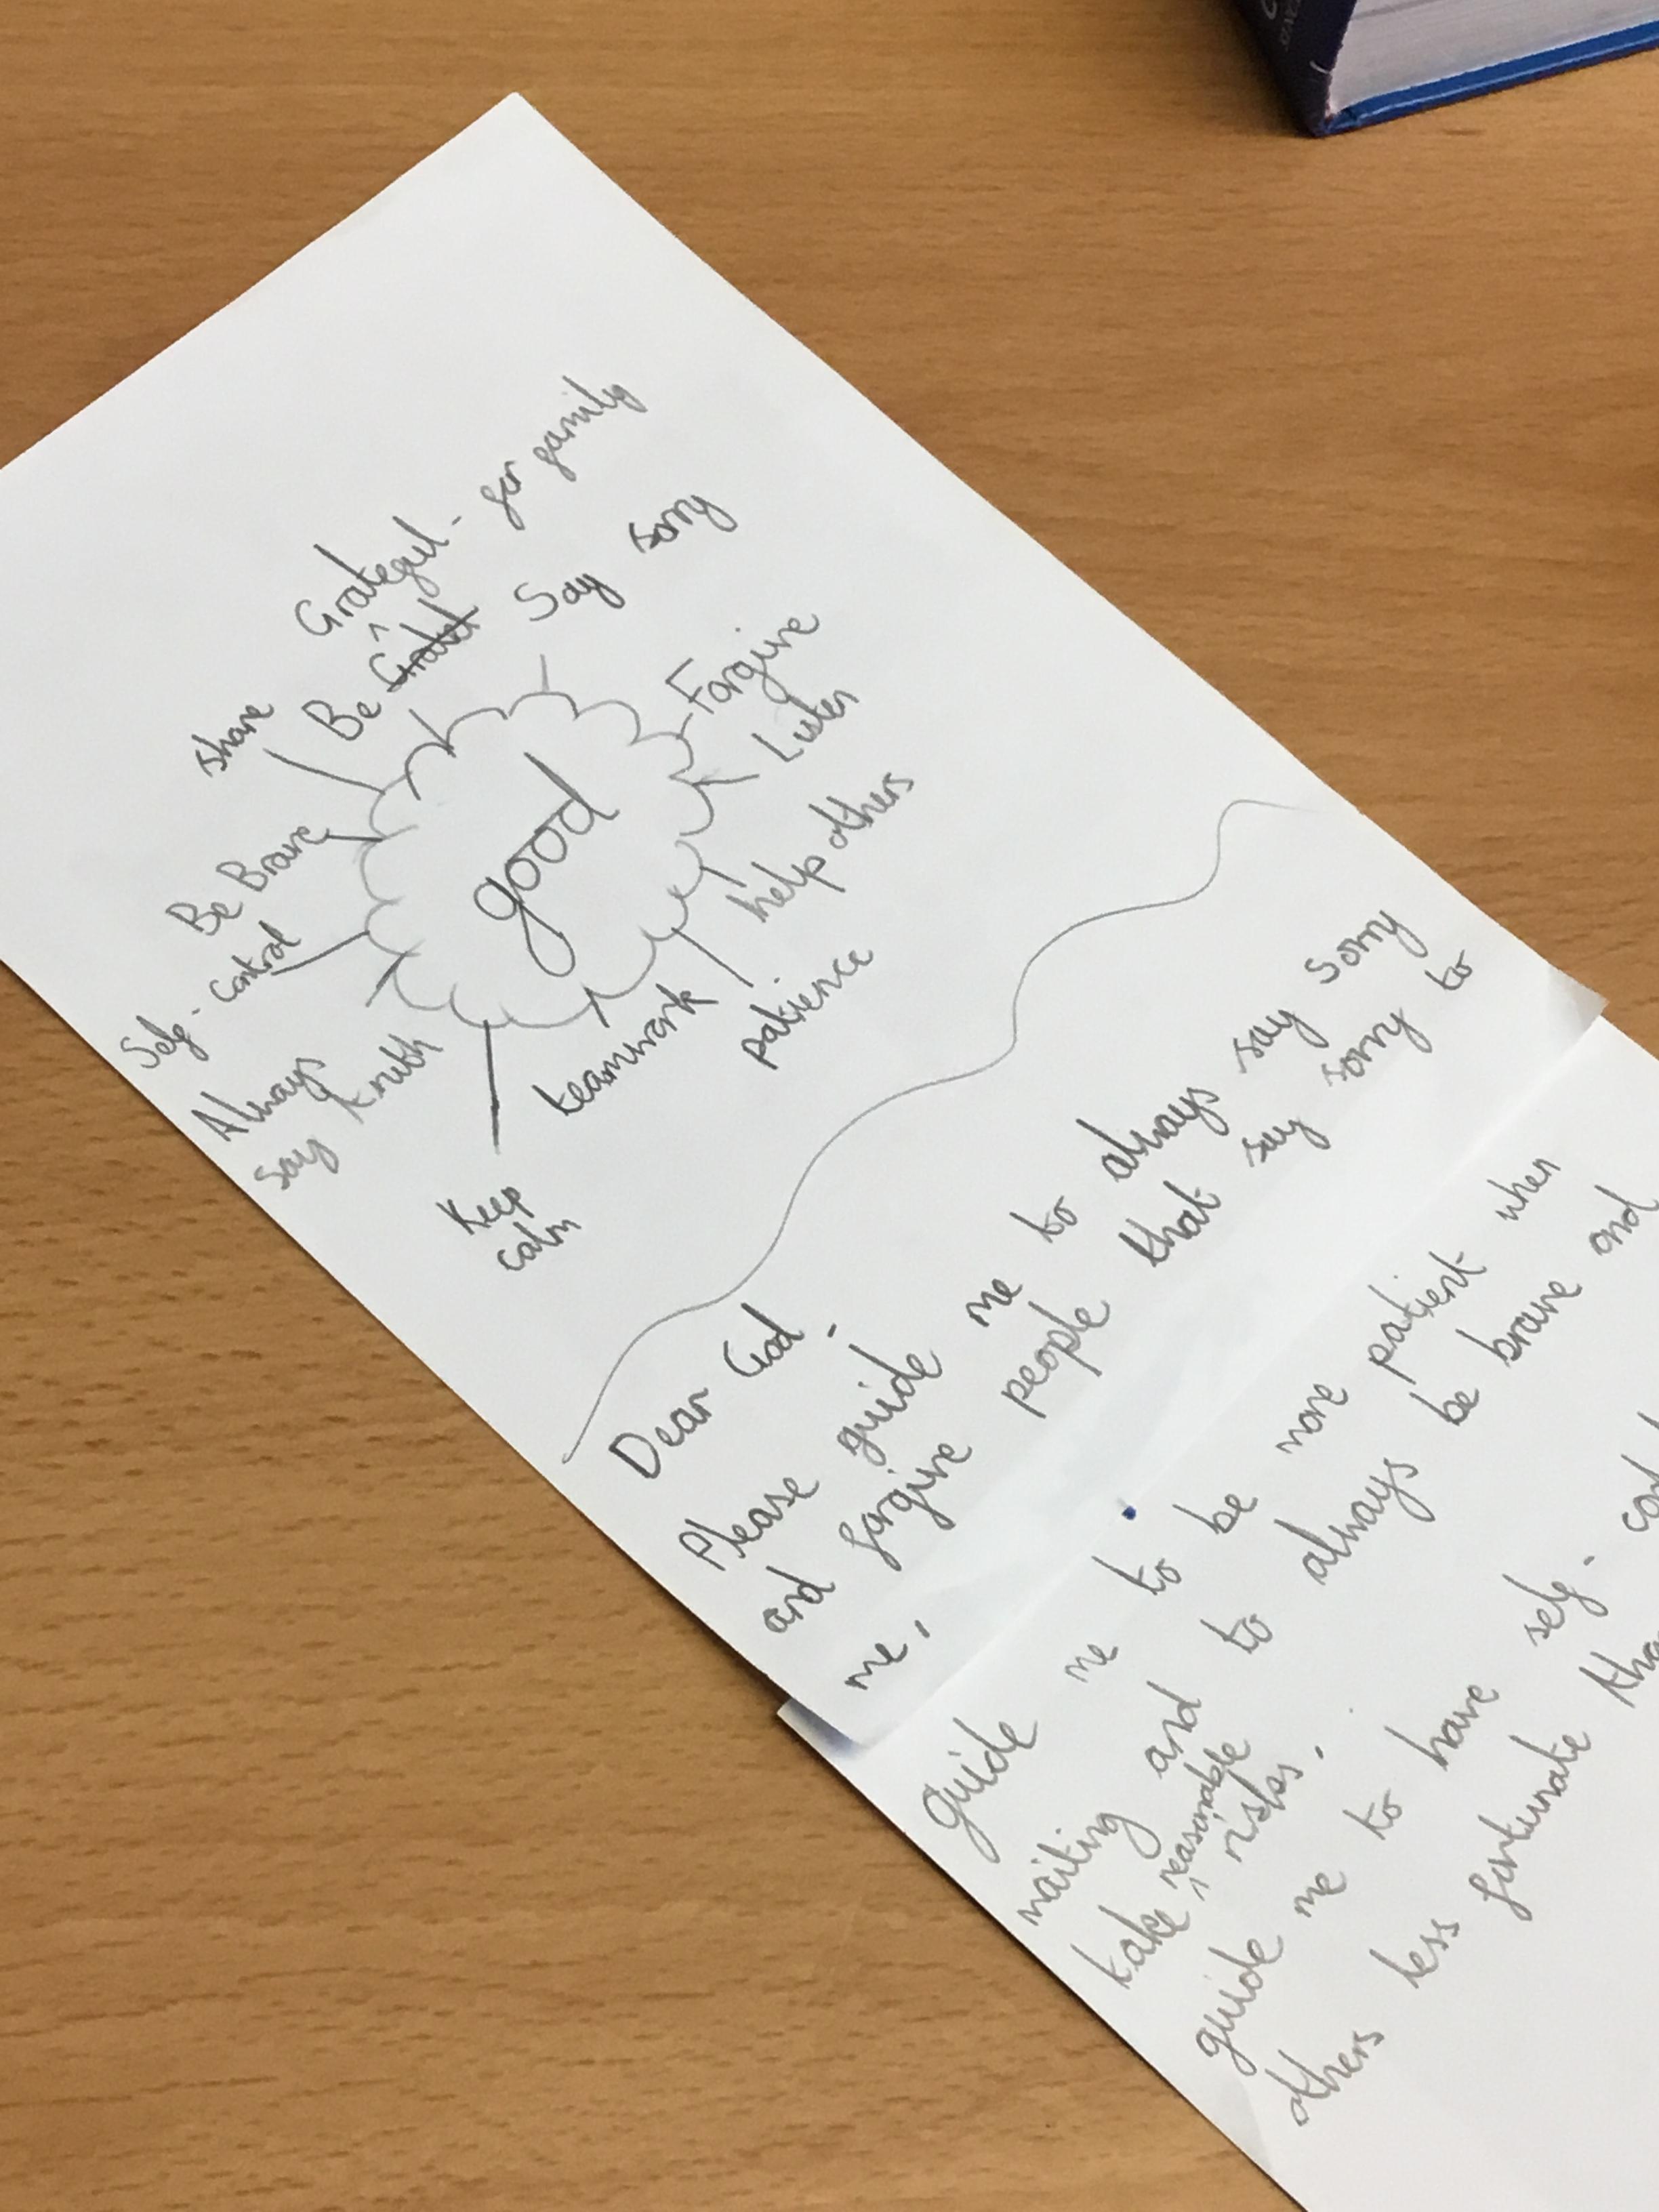 Grateful - for family
^
Be Grated
Say sorry
share
Forgive
Listen
Be Brave
good
help others
Self-control
patience
teamwork
Always
say truth
Keep
calm
Dear God -
Please guide me to always say sorry
and forgive people that say sorry to
me.
Guide me to be more patient when
waiting and to always be brave and
reasonable
take ^ risks.
guide me to have self-
others less fortunate